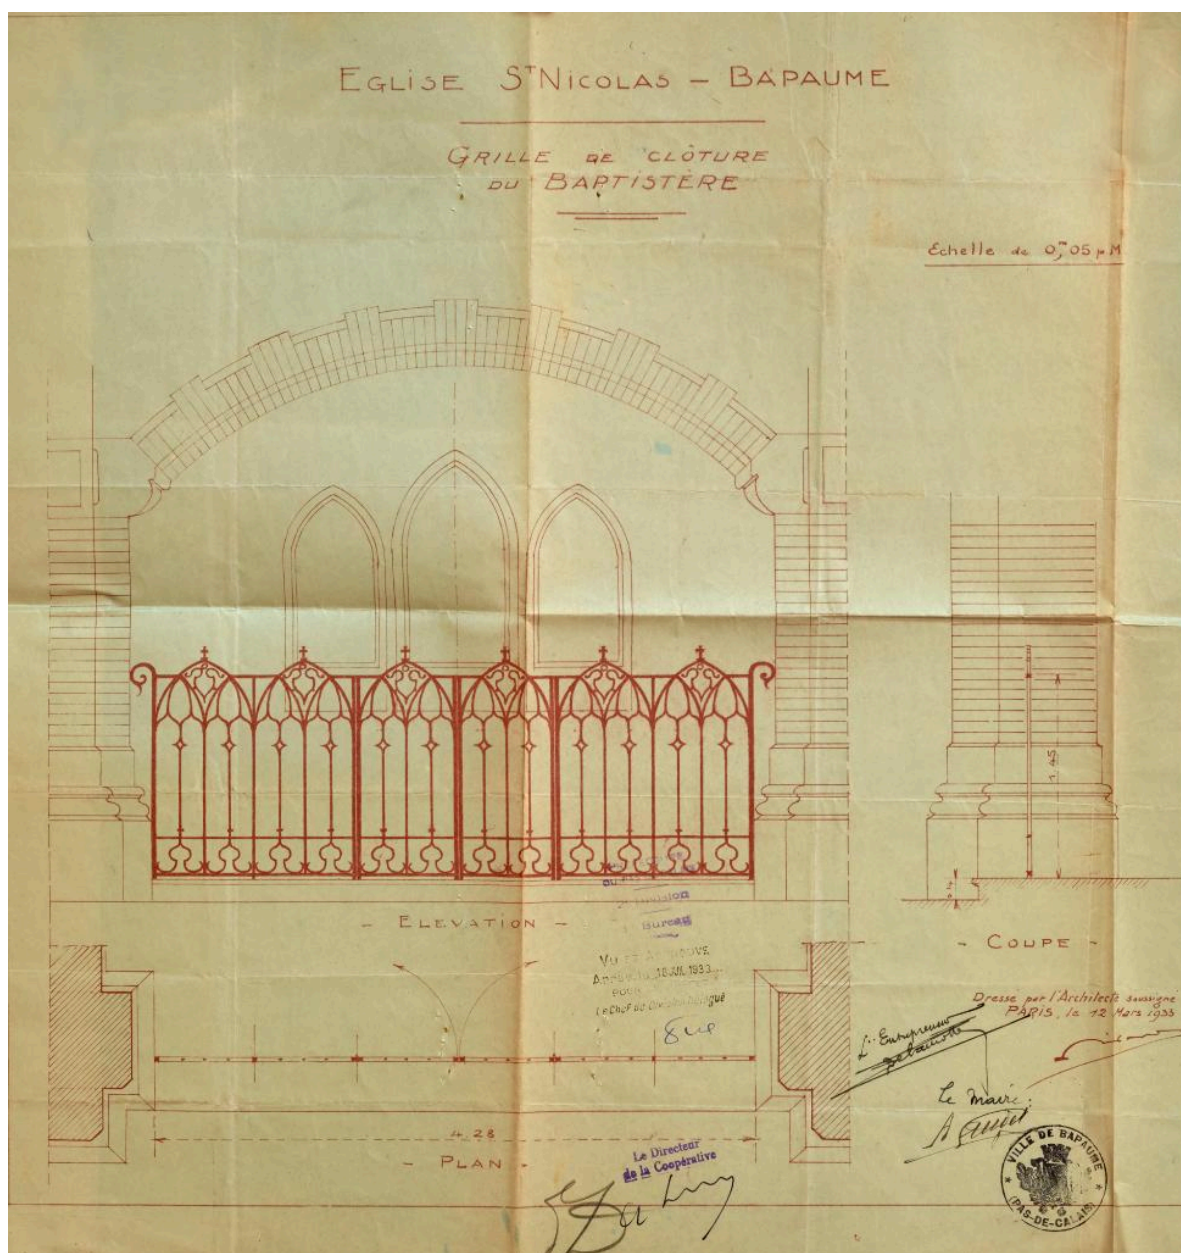 EGLISE ST NICOLAS – BAPAUME
GRILLE DE CLÔTURE
DU BAPTISTÈRE
Echelle de 0,m05 p M
1.45
- ELEVATION -
Division
Bureau
VU ET APPROUVÉ
18 JUIL 1933
POUR
Le Chef de Division Délégué
- COUPE -
Dressé par l'Architecte soussigné
PARIS, le 12 Mars 1933
L'Entrepreneur
Le Maire:
4.28
- PLAN -
Le Directeur
de la Coopérative
VILLE DE BAPAUME
(PAS-DE-CALAIS)